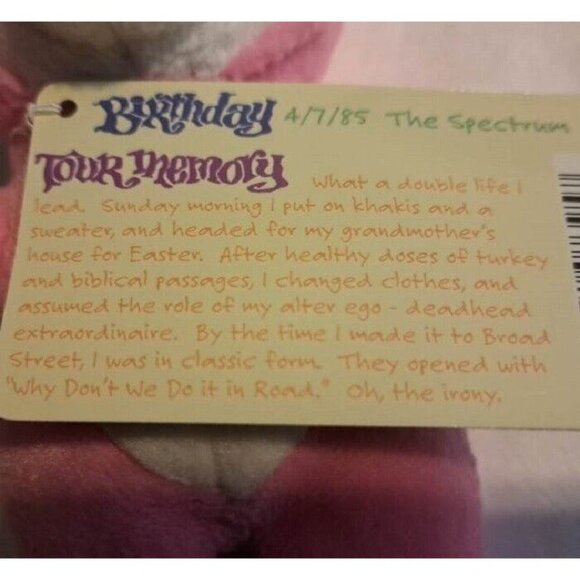 Birthday 4/7/85 The Spectrum
Tour Memory What a double life I
lead. Sunday morning I put on khakis and a
sweater, and headed for my grandmother's
house for Easter. After healthy doses of turkey
and biblical passages, I changed clothes, and
assumed the role of my alter ego - deadhead
extraordinaire. By the time I made it to Broad
Street, I was in classic form. They opened with
"Why Don't We Do it in Road." Oh, the irony.